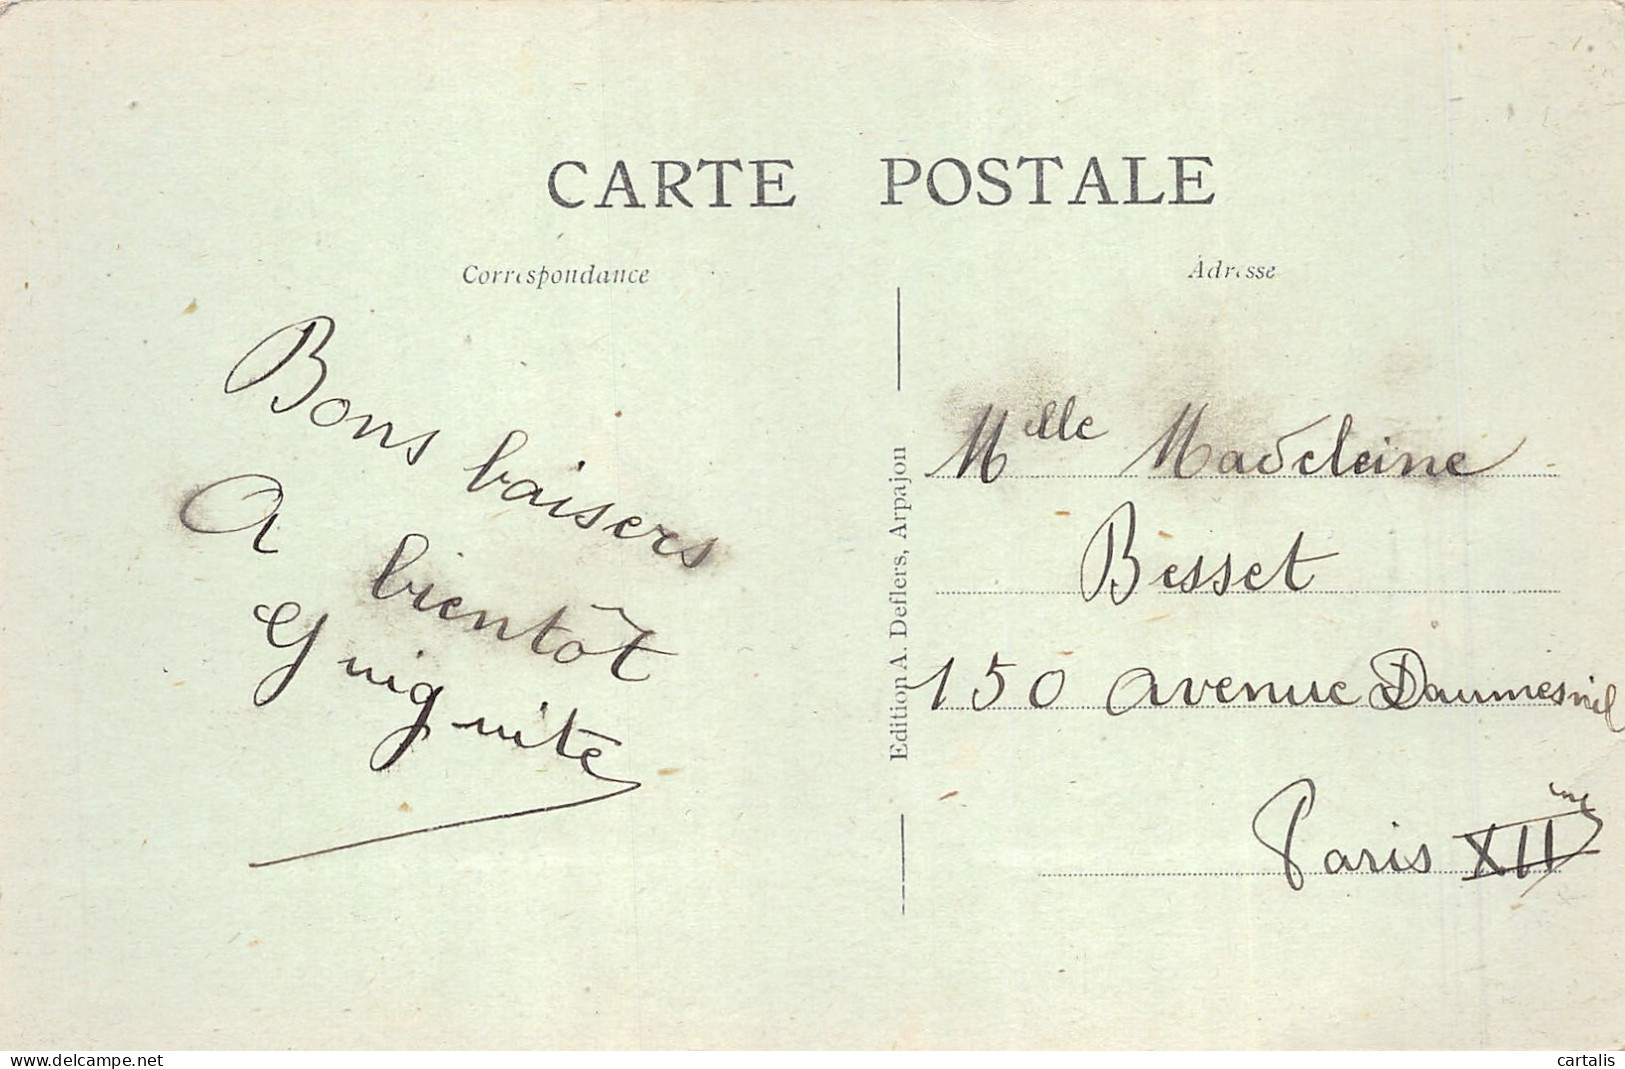 CARTE POSTALE
Correspondance
Adresse
Bons baisers
A bientôt
Guiguite
Edition A. Deflers, Arpajon
Melle Madeleine
Besset
150 avenue Daumesnil
Paris XIIme
www.delcampe.net
cartalis